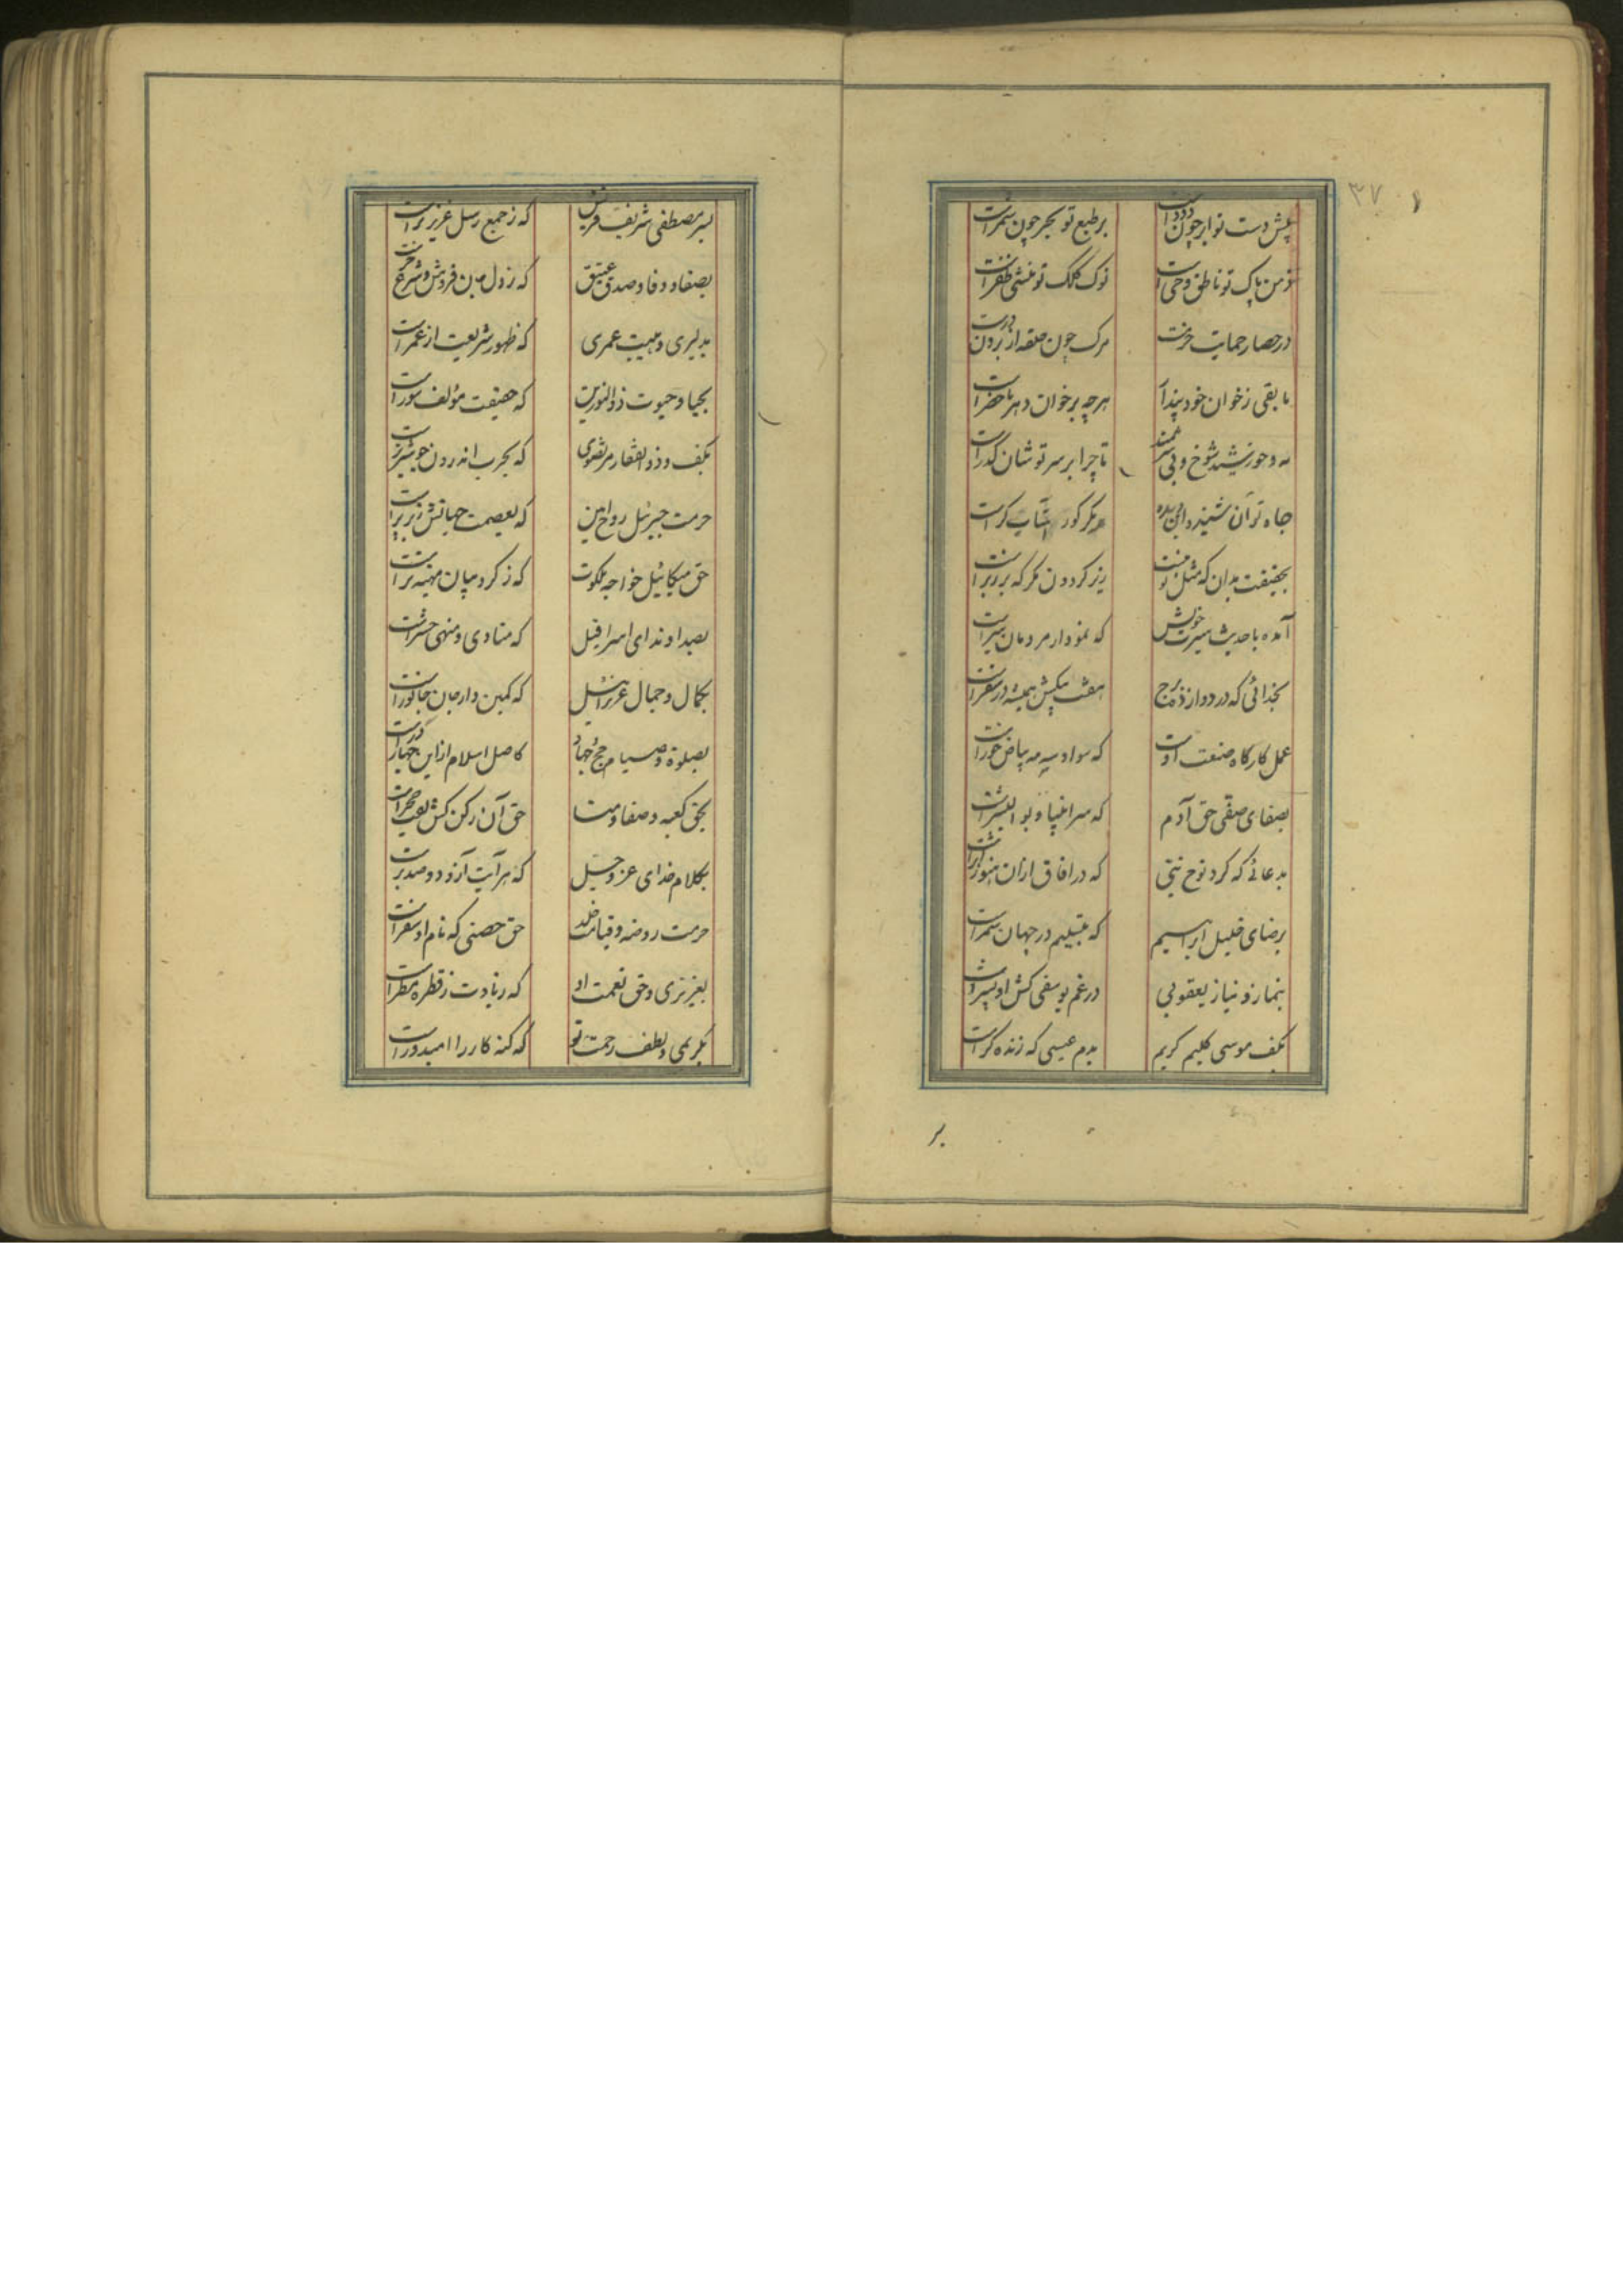 ۳۷
پیش دست تو ابر چون دود است بر طبع تو بحر چون شمر است
ذهن پاک تو ناطق وحی است نوک کلک تو منشی ظفر است
در حصار حمایت حزمت مرک چون حلقه از برون در است
ما بقی ز خوان خود پندار هر چه بر خوان دهر ما حضر است
مه و خورشید شوخ و بی شرمند تا چرا بر سر تو شان گذر است
جاه تو آن شنید و این دیده مکر کور است
بحقیقت بدان که مثل تو نیست زیر کردون مکر که بر زبر است
آمده با حدیث سیرت خویش که نمودار مردمان سیر است
بخدائی که در دوازده برج هفت پیکش همیشه در سفر است
عمل کارکاه صنعت اوست که سواد سیه مه بیاض خور است
بصفای صفی حق آدم که سر انبیا و بو البشر است
بدعائی که کرد نوح نبی که در افاق ازان هنوز اثر است
برضای خلیل ابراهیم که بتسلیم در جهان سمر است
بنماز و نیاز یعقوبی در غم یوسفی کش او پسر است
بکف موسی کلیم کریم بدم عیسی که زنده کر است
بر
بسر مصطفی شریف قریش که ز جمع رسل عزیزتر است
بصفا و وفا و صدق عتیق که
بدلیری و هیبت عمری که ظهور شریعت از عمر است
بحیا و حیوت ذوالنورین که حقیقت مؤلف سور است
بکف و ذوالفقار مرتضوی که بحرب اندرون چو شیر نر است
حرمت جبرئیل روح امین که بعصمت جهانش زیر پر است
حق میکائیل خواجه ملکوت که ز کروبیان مهینه تر است
بصدا و ندای اسرافیل که منادی و منهی حشر است
بکمال و جمال عزرائیل که کمین دار جان جانور است
بصلوة و صیام و حج و جهاد کاصل اسلام از این چهار در است
بحق کعبه و صفا و منا حق آن رکن کش لقب حجر است
بکلام خدای عز و جل که هر آیت ازو دو صد عبر است
حرمت روضه و قیامت خلد حق حصنی که نام او سقر است
بعزیزی و حق نعمت او که زیادت ز قطره مطر است
بکریمی و لطف رحمت تو که کنه کار را امیدور است